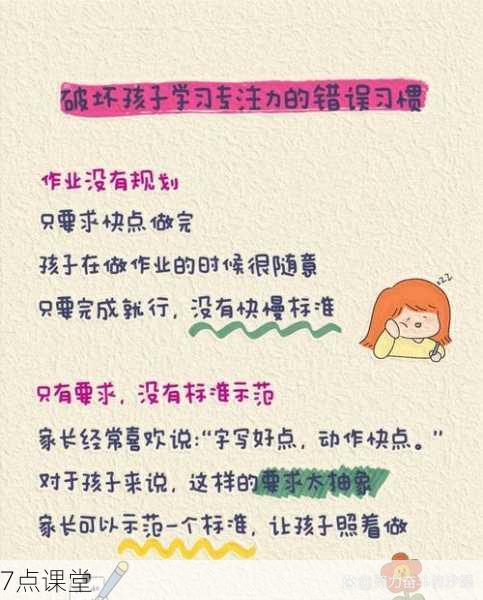 破坏孩子学习专注力的错误习惯
作业没有规划
只要求快点做完
孩子在做作业的时候很随意
只要完成就行，没有快慢标准
zZZ
只有要求，没有标准示范
家长经常喜欢说：“字写好点，动作快点。”
对于孩子来说，这样的要求太抽象
家长可以示范一个标准，让孩子照着做
7点课堂